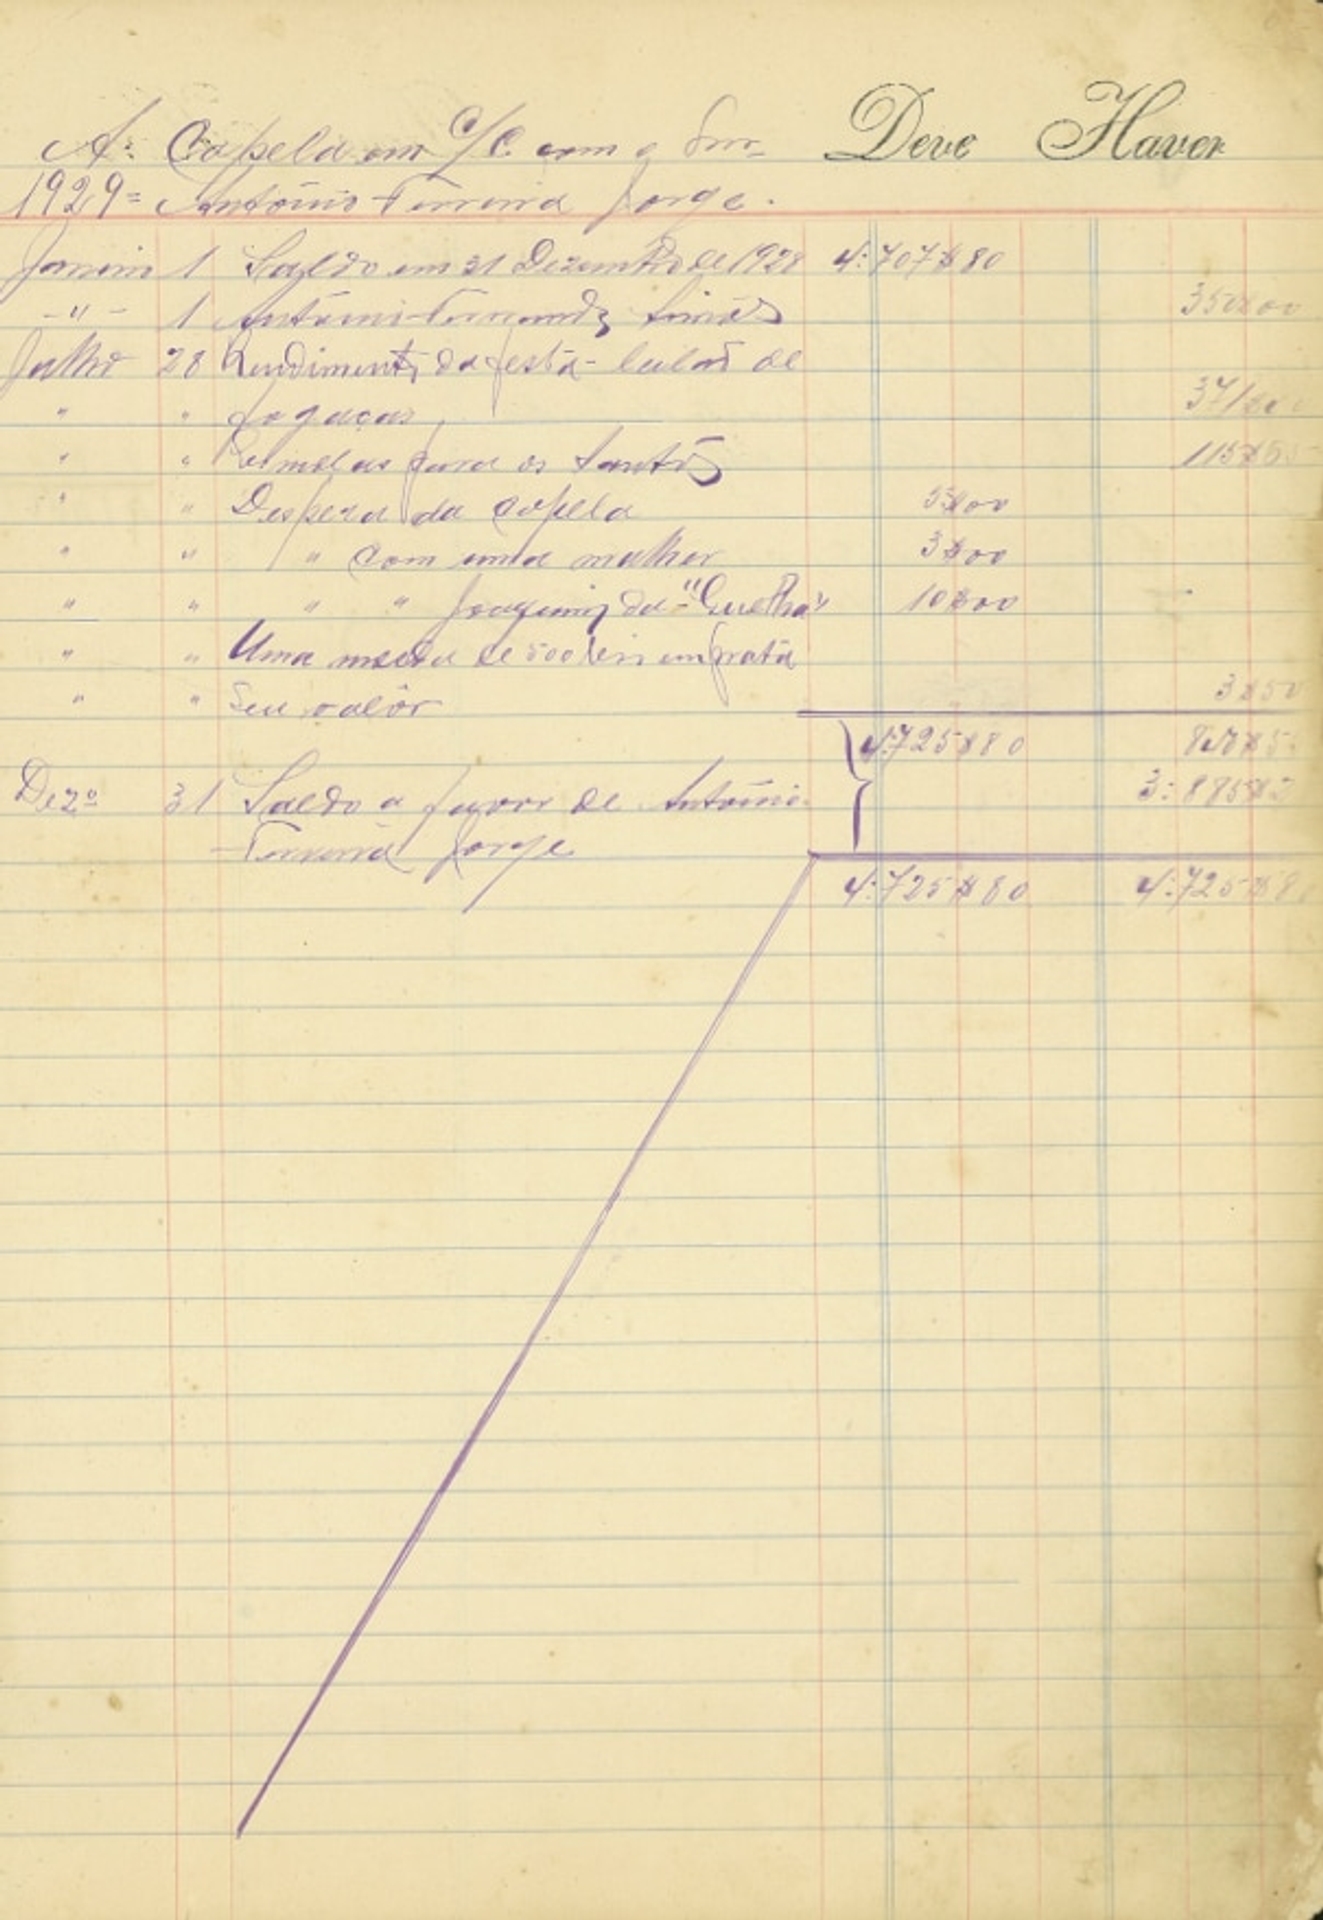 A: Capela em C/C com o Snr. Deve Haver
1929= António Ferreira Jorge.
Janeiro 1 Saldo em 31 Dezembro de 1928 4:707$80
-"- 1 António Fernandes Simões 350$00
Julho 28 Rendimento da festa- leilão de
" " fogaças 371$
" " Esmolas para os Santos 115$
" " Despeza da capela 5$00
" " " com uma mulher 3$00
" " " " Joaquim da "Guelha" 10$00
" " Uma moeda de 500 reis em prata
" " Seu valôr 3$50
4:725$80
Dezº 31 Saldo a favor de António 3:885$
Ferreira Jorge
4:725$80 4:725$80